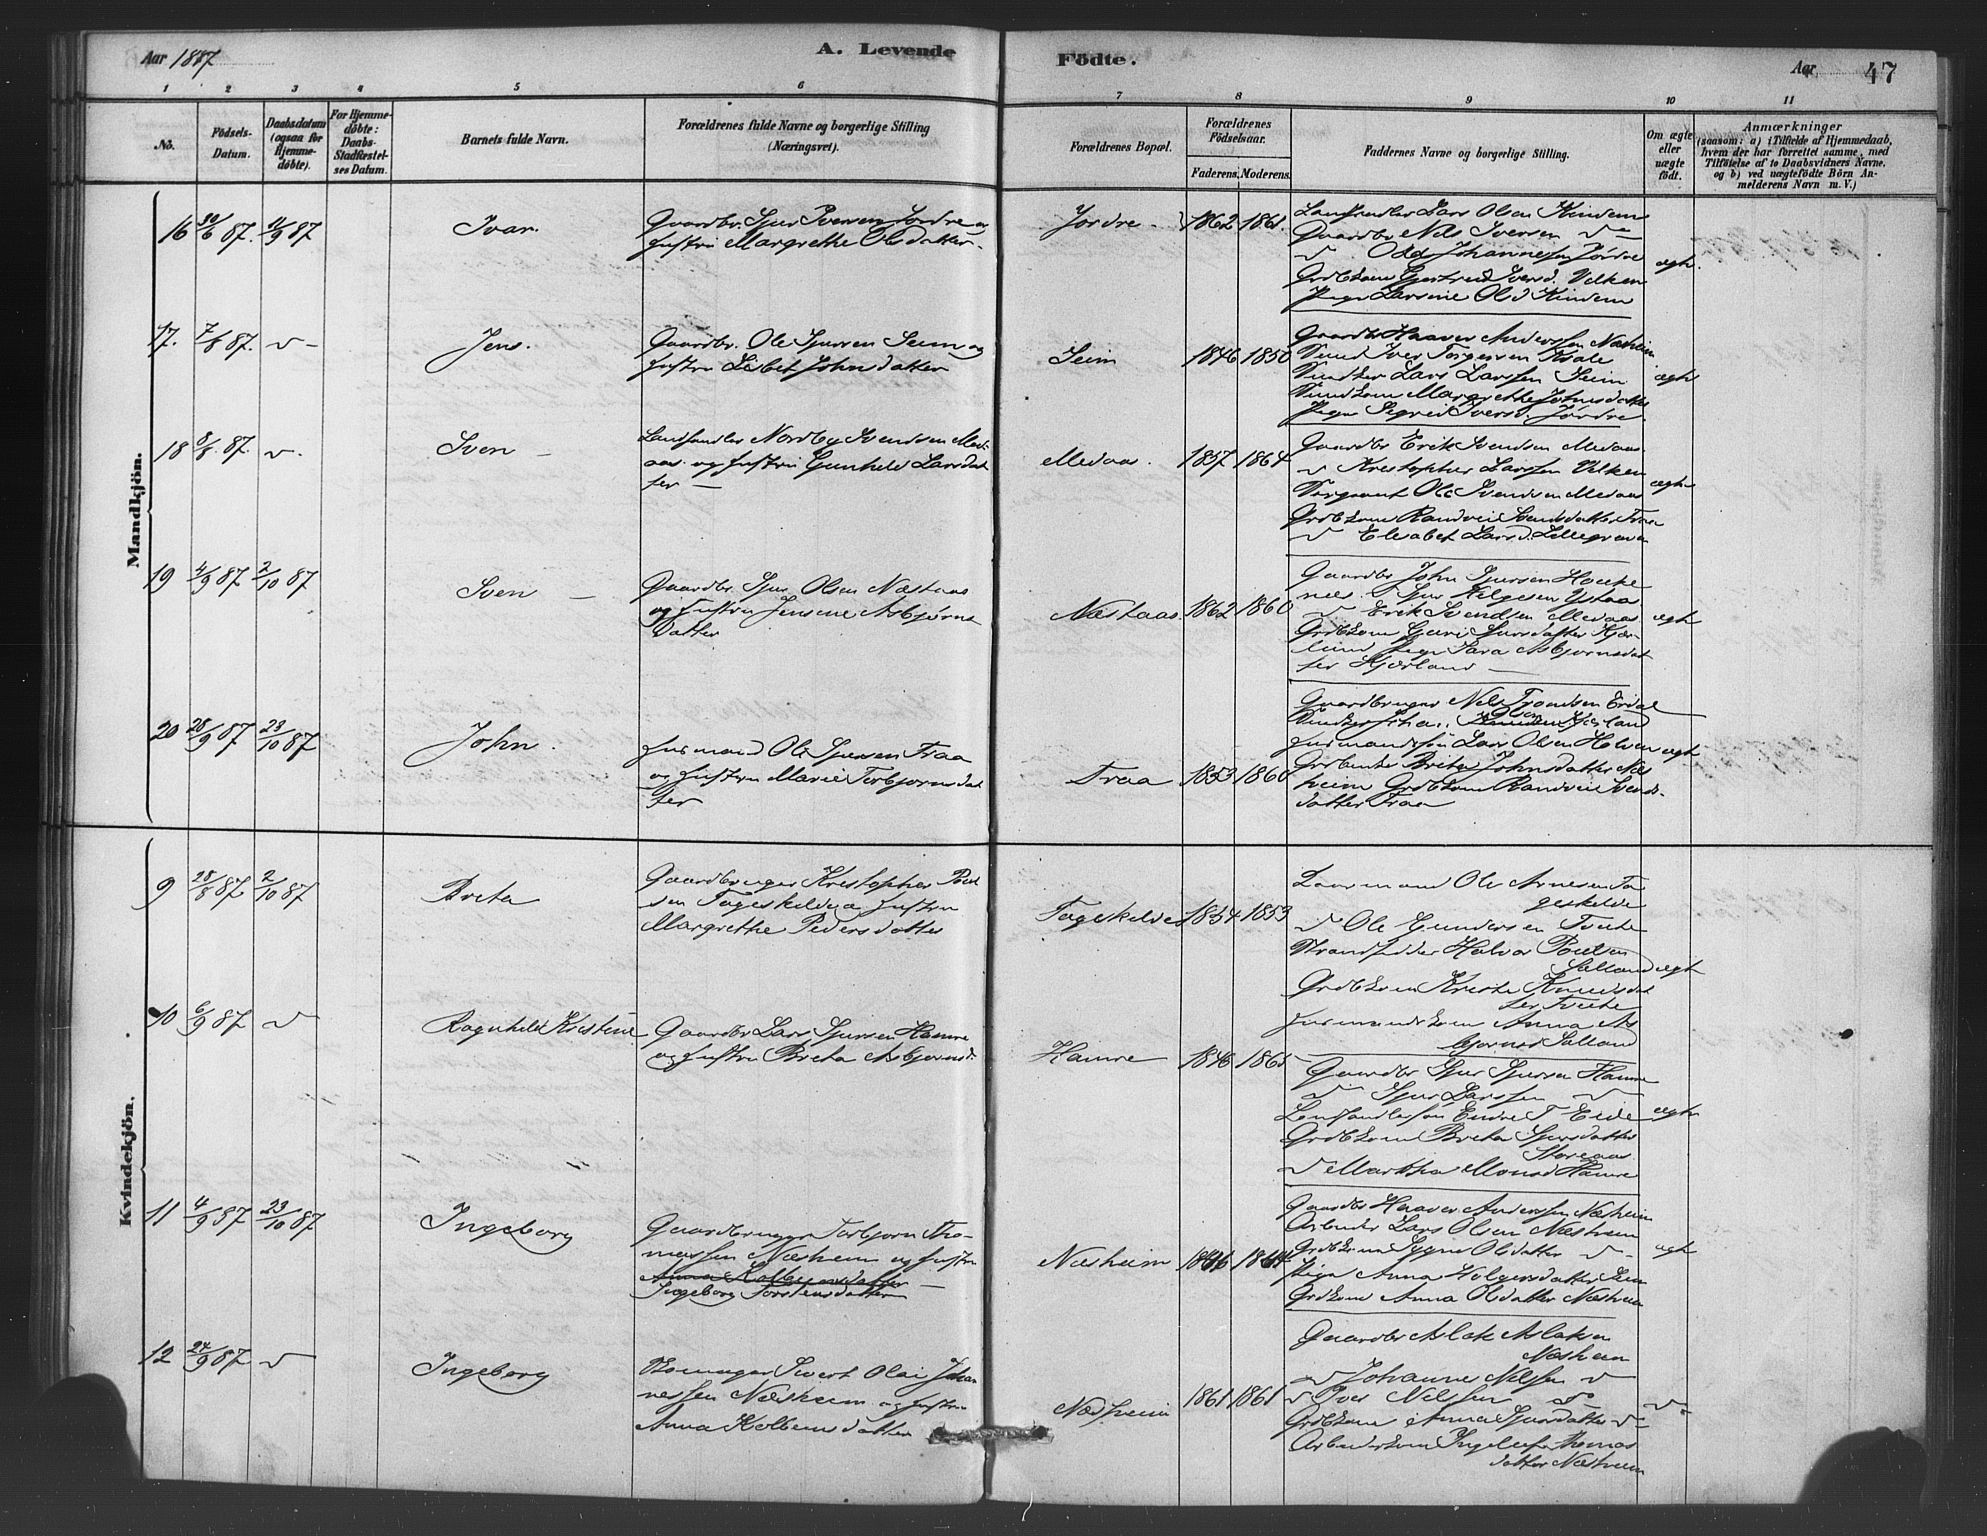 Aar 1887
A. Levende
Födte.
Aar
47
1 2 3 4 5 6 7 8 9 10 11
No.
Födsels-Datum.
Daabsdatum (ogsaa for Hjemme-döbte).
For Hjemme-döbte: Daabs-Stadfæstel-ses Datum.
Barnets fulde Navn.
Forældrenes fulde Navne og borgerlige Stilling (Næringsvei).
Forældrenes Bopæl.
Forældrenes Födselsaar.
Faderens. Moderens.
Faddernes Navne og borgerlige Stilling.
Om ægte eller uægte födt.
Anmærkninger
(saasom: a) i Tilfælde af Hjemmedaab, hvem der har forrettet samme, med Tilföielse af to Daabsvidners Navne, og b) ved uægtefödte Börn An-melderens Navn m. V.)
Mandkjön.
16 30/6 87. 11/9 87 Ivar.
Gaardbr. Sjur Iversen Jordre og
hustru Margrethe Olsdatter
Jordre 1862 1861.
Landhandler Lars Olsen Kindem
Gaardbr Nils Iversen
Odd Johannesen Jørdre
Grdbkone Gjertrud Iversd. Velken
Pige Larsine Olsd Kindem
ægte
17. 7/8 87. Jens.
Gaardbr. Ole Sjursen Seim og
hustru Lisbet Johnsdatter
Seim 1846 1850
Gaardbr Haaver Anderssen Næsheim
Lars Larssen Seim
Margrethe Johnsdatter
Pige Sigrid Iversd. Jørdre.
ægte
18 8/8. 87. Sven
Landhandler Nordby Svendsen Med-
aas og hustru Gunhild Larsdat
ter
Medaas. 1857 1864
Gaardbr Erik Svendsen Medaas
Kristopher Larssen Velken
Ole Svendsen Medaas
Grdbkone Randvei Svendsdatter Traa
Elisabet Larsd. Lillegraven
ægte
19 4/9 87 2/10 87 Sven
Gaardbr. Sjur Olsen Næstaas
og hustru Jensine Asbjørns
datter
Næstaas. 1862 1860
Gaardbr John Sjursen Hauke
næs. Sjur Helgesen Ystaas
Erik Svendsen Medaas
Grdbkone Guri Sjursdatter Kjær-
land Pige Sara Asbjørnsdat
ter Kjærland
ægte
20 28/9 87 23/10 87 John.
Husmand Ole Sjursen Traa
og hustru Marie Torbjørnsdat
ter
Traa 1853 1860
Gaardbruger Nels Trondsen Eidal
Husmandssøn Lars Olsen Helven
Brita Johnsdatter Næs
heim Grdbkone Randvei Svends-
datter Traa
ægte
Kvindekjön.
9 28/8 87 2/10 87 Brita
Gaardbruger Kristopher Poul
sen Fageskilde og hustru
Margrethe Pedersdatter
Fageskilde 1854 1853
Laarmand Ole Arnesen Fa
geskilde
Ole Gundersen Tveite
Strandsidder Halvor Poulsen
Salland
Grdbkonen Kristi Knudsdat
ter Tveite
Husmandskonen Anna As
bjørnsd Salland
ægte
10 6/9 87 Ragnhild Kristine
Gaardbr Lars Sjursen Hamre
og hustru Brita Asbjørnsd.
Hamre 1846 1865
Gaardbr Sjur Sjursen Hamre
Sjur Larssen
Landhandlersøn Endre T Eide
Grdbkone Brita Sjursdatter
Storeaas
Martha Monsd Hamre
ægte
11 4/9 87 23/10 87 Ingeborg
Gaardbruger Torbjørn Tho-
massen Næsheim og hustru
Ingeborg Torstensdatter
Næsheim 1846 1844
Gaardbr Haaver Anderssen Næsheim
Arbeider Lars Olsen Næsheim
Grdbkone Sygni Olsdatter
Pige Anna Holgersdatter Seim
Grdkone Anna Olsdatter Næsheim
ægte
12 24/9 87 Ingeborg
Sivert Olai Johan
nessen Næsheim og hustru
Anna Kolbensdatter
Næsheim 1861 1861
Gaardbr Aslak Aslaksen
Næsheim
Johannes Nelssen
Iver Nelssen
Grdbkone Anna Sjursdatter
Arbeiderkone Ingeleif Thomas
datter Næsheim